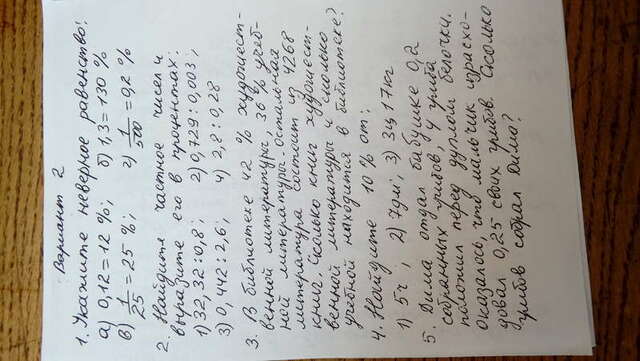 Вариант 2
1. Укажите неверное равенство:
а) 0,12 = 12 %; б) 1,3 = 130 %
в) 1/25 = 25 %; г) 1/500 = 0,2 %
2. Найдите частное чисел и
выразите его в процентах:
1) 32,32 : 0,8; 2) 0,729 : 0,003;
3) 0,442 : 2,6; 4) 2,8 : 0,28
3. В библиотеке 42 % художест-
венной литературы, 36 % учеб-
ной литературы. Остальная
литература состоит из 4268
книг. Сколько книг художест-
венной литературы и сколько
учебной находится в библиотеке?
4. Найдите 10 % от:
1) 5ч, 2) 7дм, 3) 3ц 17кг
5. Дима отдал бабушке 0,2
собранных грибов, 4 гриба
положил перед дуплом белочки.
Оказалось, что мальчик израсхо-
довал 0,25 своих грибов. Сколько
грибов собрал Дима?